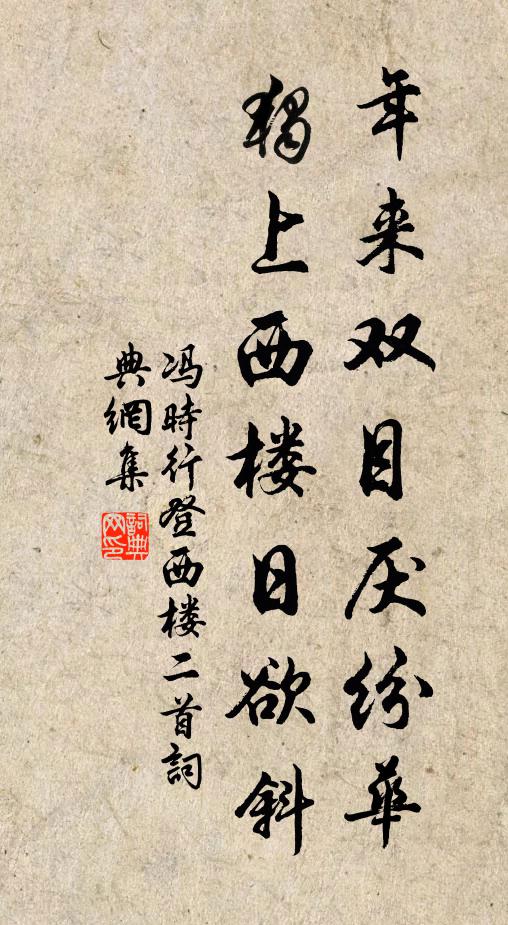 年来双目厌纷華
獨上西楼日欲斜
冯時行登西楼二首詞
典網集
詞典网印